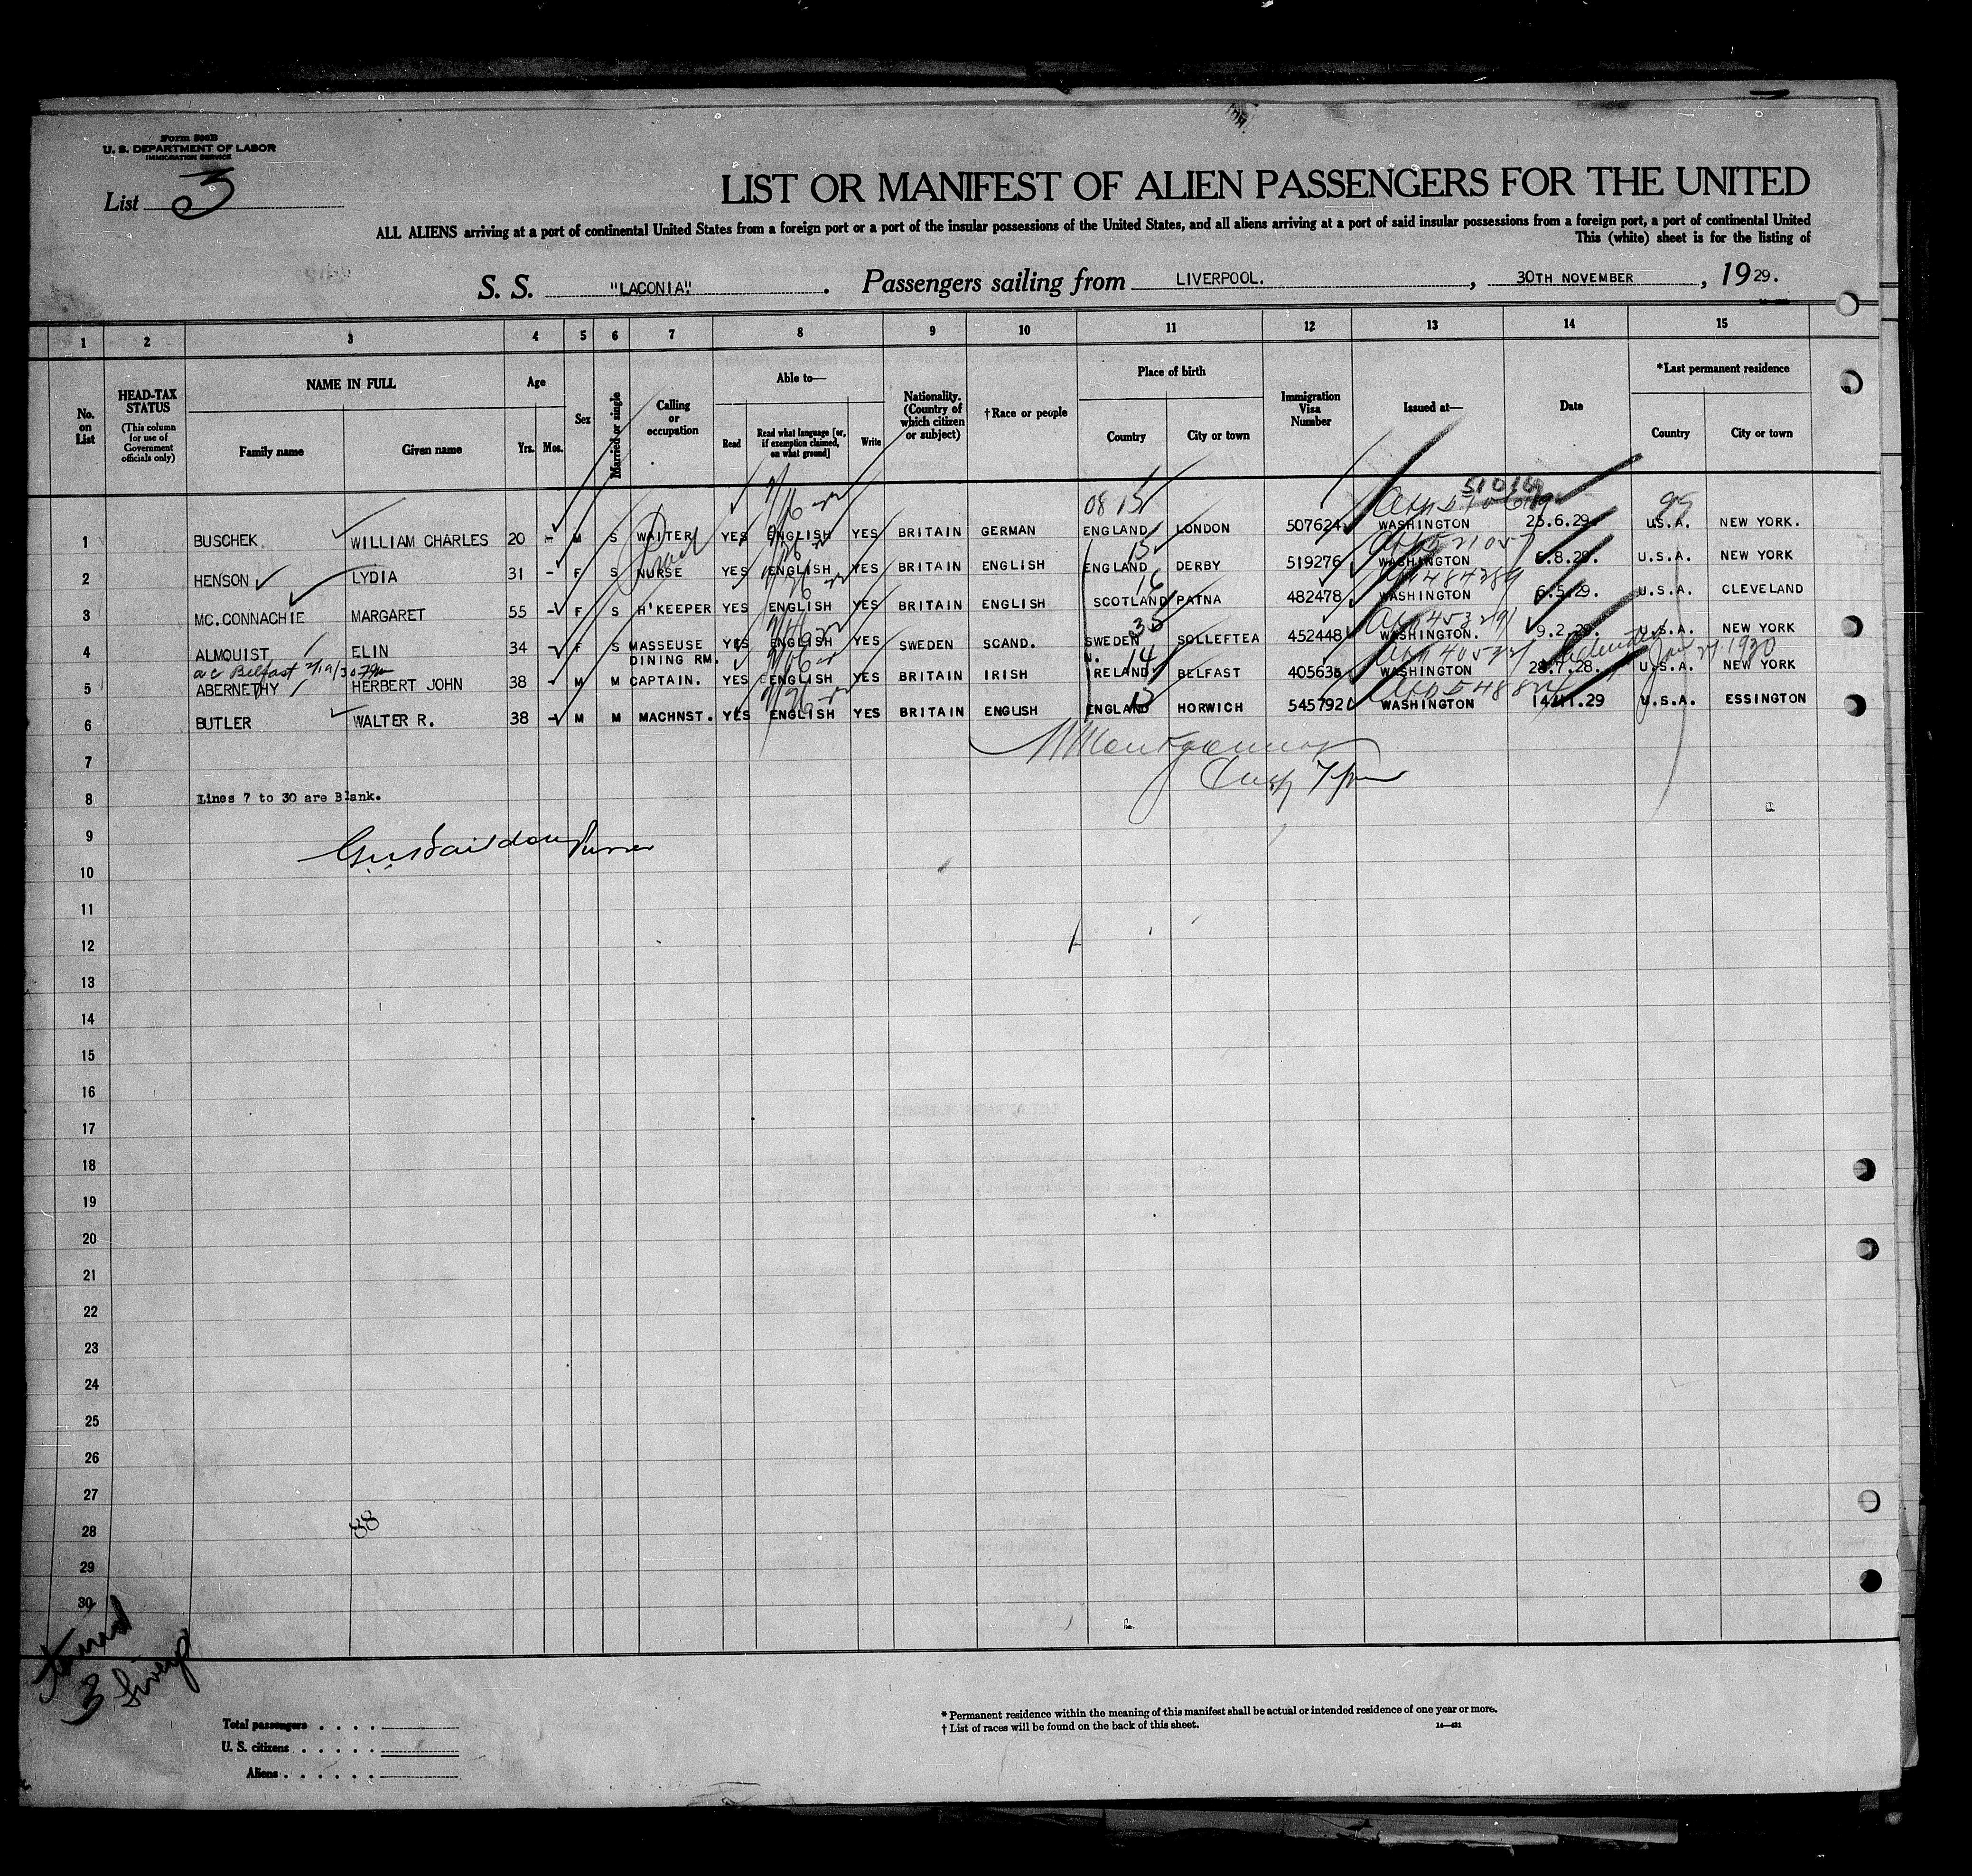 Form 500B
U. S. DEPARTMENT OF LABOR
IMMIGRATION SERVICE
List 3
LIST OR MANIFEST OF ALIEN PASSENGERS FOR THE UNITED
ALL ALIENS arriving at a port of continental United States from a foreign port or a port of the insular possessions of the United States, and all aliens arriving at a port of said insular possessions from a foreign port, a port of continental United
This (white) sheet is for the listing of
S. S. "LACONIA". Passengers sailing from LIVERPOOL. , 30TH NOVEMBER , 1929.
1 2 3 4 5 6 7 8 9 10 11 12 13 14 15
No. on List
HEAD-TAX STATUS
(This column for use of Government officials only)
NAME IN FULL
Family name Given name
Age
Yrs. Mos.
Sex
Married or single
Calling or occupation
Able to—
Read
Read what language [or, if exemption claimed, on what ground]
Write
Nationality. (Country of which citizen or subject)
†Race or people
Place of birth
Country City or town
Immigration Visa Number
Issued at—
Date
*Last permanent residence
Country City or town
51016
08 15 99
1 BUSCHEK. WILLIAM CHARLES 20 - M S WAITER YES ENGLISH YES BRITAIN GERMAN ENGLAND LONDON 507624 WASHINGTON 25.6.29. U.S.A. NEW YORK.
15
2 HENSON LYDIA 31 - F S NURSE YES ENGLISH YES BRITAIN ENGLISH ENGLAND DERBY 519276 WASHINGTON 6.8.29. U.S.A. NEW YORK
16 484289
3 MC.CONNACHIE MARGARET 55 - F S H'KEEPER YES ENGLISH YES BRITAIN ENGLISH SCOTLAND PATNA 482478 WASHINGTON 6.5.29. U.S.A. CLEVELAND
35 453291
4 ALMQUIST ELIN 34 - F S MASSEUSE YES ENGLISH YES SWEDEN SCAND. SWEDEN SOLLEFTEA 452448 WASHINGTON. 9.2.29. U.S.A. NEW YORK
a c Belfast DINING RM. N. 14 Jan 27. 1930
5 ABERNETHY HERBERT JOHN 38 - M M CAPTAIN. YES ENGLISH YES BRITAIN IRISH IRELAND BELFAST 405635 WASHINGTON 28.7.28. U.S.A. NEW YORK
6 BUTLER WALTER R. 38 - M M MACHNST. YES ENGLISH YES BRITAIN ENGLISH ENGLAND HORWICH 545792 WASHINGTON 14.11.29 U.S.A. ESSINGTON
7
8 Lines 7 to 30 are Blank.
9
Purser
10
11
12
13
14
15
16
17
18
19
20
21
22
23
24
25
26
27
28 88
29
30
3
Total passengers . . . .
U. S. citizens . . . . .
Aliens . . . . . .
* Permanent residence within the meaning of this manifest shall be actual or intended residence of one year or more.
† List of races will be found on the back of this sheet. 14—421